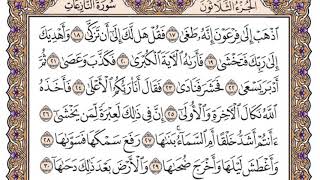 الجزء الثلاثون
سورة النازعات
اذهب إلى فرعون إنه طغى ١٧ فقل هل لك إلى أن تزكى ١٨ وأهديك
إلى ربك فتخشى ١٩ فأراه الآية الكبرى ٢٠ فكذب وعصى ٢١ ثم
أدبر يسعى ٢٢ فحشر فنادى ٢٣ فقال أنا ربكم الأعلى ٢٤ فأخذه
الله نكال الآخرة والأولى ٢٥ إن في ذلك لعبرة لمن يخشى ٢٦
ءأنتم أشد خلقا أم السماء بناها ٢٧ رفع سمكها فسواها ٢٨
وأغطش ليلها وأخرج ضحاها ٢٩ والأرض بعد ذلك دحاها ٣٠